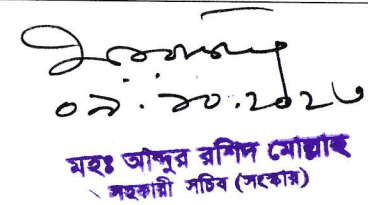 ০৯.১০.২০২৩
মহঃ আব্দুর রশিদ মোল্লাহ
সহকারী সচিব (সংস্কার)